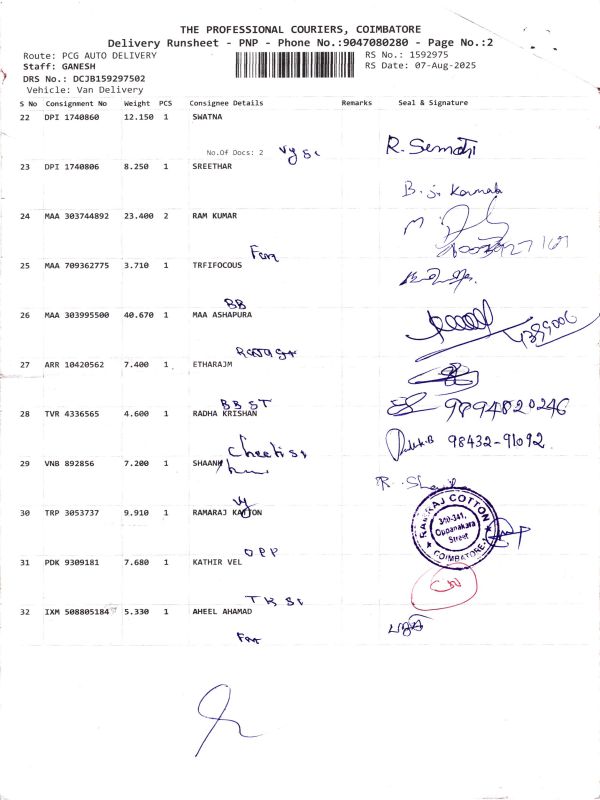 THE PROFESSIONAL COURIERS, COIMBATORE
Delivery Runsheet - PNP - Phone No.:9047080280 - Page No.:2
Route: PCG AUTO DELIVERY RS No.: 1592975
Staff: GANESH RS Date: 07-Aug-2025
DRS No.: DCJB159297502
Vehicle: Van Delivery
S No Consignment No Weight PCS Consignee Details Remarks Seal & Signature
22 DPI 1740860 12.150 1 SWATNA
No.Of Docs: 2 Vy St R.
23 DPI 1740806 8.250 1 SREETHAR
B.
24 MAA 303744892 23.400 2 RAM KUMAR
25 MAA 709362775 3.710 1 TRFIFOCOUS
BB
26 MAA 303995500 40.670 1 MAA ASHAPURA
27 ARR 10420562 7.400 1 ETHARAJM
BB ST 9894820246
28 TVR 4336565 4.600 1 RADHA KRISHAN
98432-91092
29 VNB 892856 7.200 1 SHAANK
R.
Vy
30 TRP 3053737 9.910 1 RAMARAJ KATTON
RAMRAJ COTTON
300-341,
Oppanakara
Street
COIMBATORE-1
OPP
31 PDK 9309181 7.680 1 KATHIR VEL
TK St
32 IXM 508805184 5.330 1 AHEEL AHAMAD